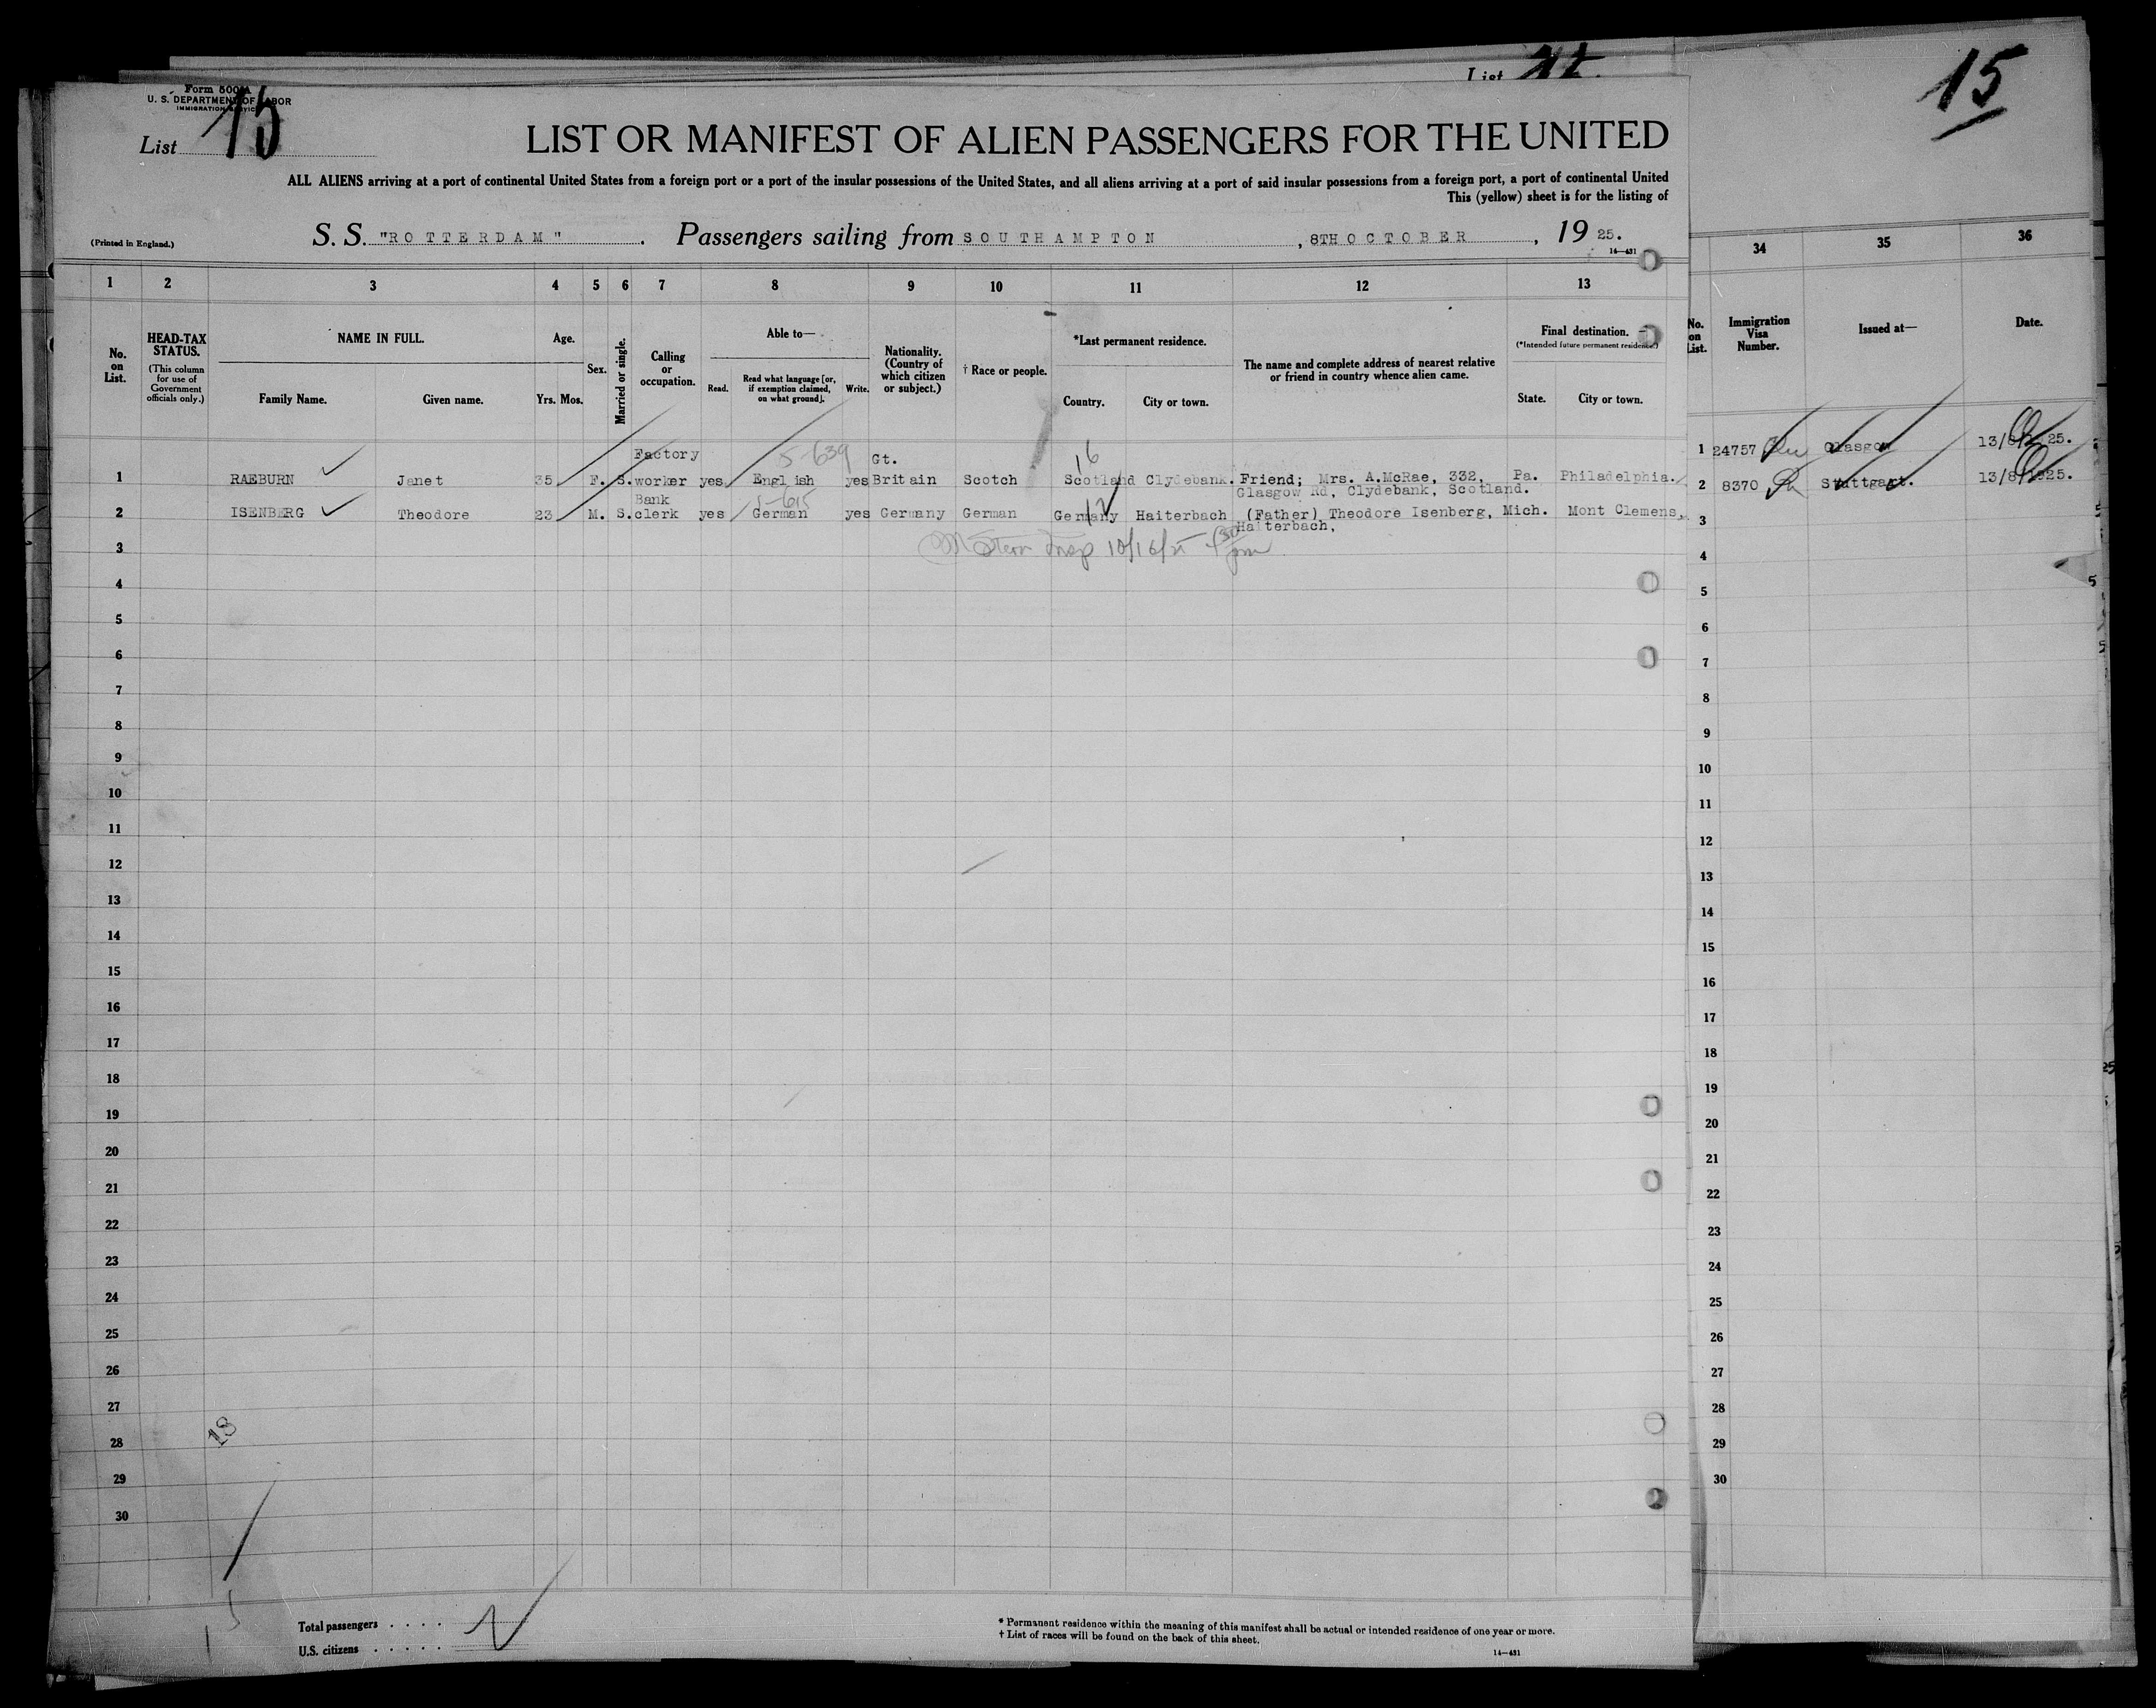 List
15
Form 500 A
U. S. DEPARTMENT OF LABOR
IMMIGRATION SERVICE
List 15
LIST OR MANIFEST OF ALIEN PASSENGERS FOR THE UNITED
ALL ALIENS arriving at a port of continental United States from a foreign port or a port of the insular possessions of the United States, and all aliens arriving at a port of said insular possessions from a foreign port, a port of continental United
This (yellow) sheet is for the listing of
(Printed in England.) S. S. "ROTTERDAM" . Passengers sailing from SOUTHAMPTON , 8TH OCTOBER , 19 25.
14—431
1 2 3 4 5 6 7 8 9 10 11 12 13 34 35 36
No. on List. HEAD-TAX STATUS. (This column for use of Government officials only.) NAME IN FULL. Family Name. Given name. Age. Yrs. Mos. Sex. Married or single. Calling or occupation. Able to— Read. Read what language [or, if exemption claimed, on what ground]. Write. Nationality. (Country of which citizen or subject.) † Race or people. *Last permanent residence. Country. City or town. The name and complete address of nearest relative or friend in country whence alien came. Final destination. (*Intended future permanent residence.) State. City or town. No. on List. Immigration Visa Number. Issued at— Date.
Factory 5-639 Gt. 16
1 RAEBURN Janet 35 F. S. worker yes English yes Britain Scotch Scotland Clydebank. Friend; Mrs. A.McRae, 332, Pa. Philadelphia. 1 24757 Glasgow 13/8/1925.
Bank 5-615 Glasgow Rd, Clydebank, Scotland.
2 ISENBERG Theodore 23 M. S. clerk yes German yes Germany German Germany 12 Haiterbach (Father) Theodore Isenberg, Mich. Mont Clemens, 2 8370 Stuttgart. 13/8/1925.
Haiterbach,
3 Stern Insp 10/16/25 pm 3
4 4
5 5
6 6
7 7
8 8
9 9
10 10
11 11
12 12
13 13
14 14
15 15
16 16
17 17
18 18
19 19
20 20
21 21
22 22
23 23
24 24
25 25
26 26
27 27
28 18 28
29 29
30 30
Total passengers . . . .
U.S. citizens . . . . .
* Permanent residence within the meaning of this manifest shall be actual or intended residence of one year or more.
† List of races will be found on the back of this sheet.
14—431